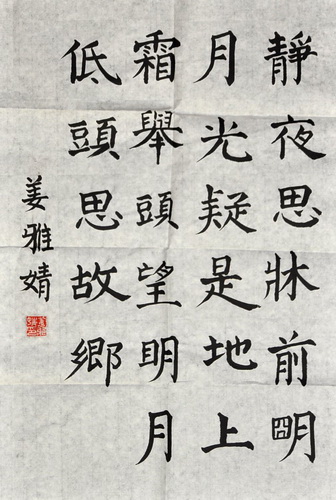 靜夜思牀前朙
月光疑是地上
霜舉頭望明月
低頭思故鄉
姜雅婧